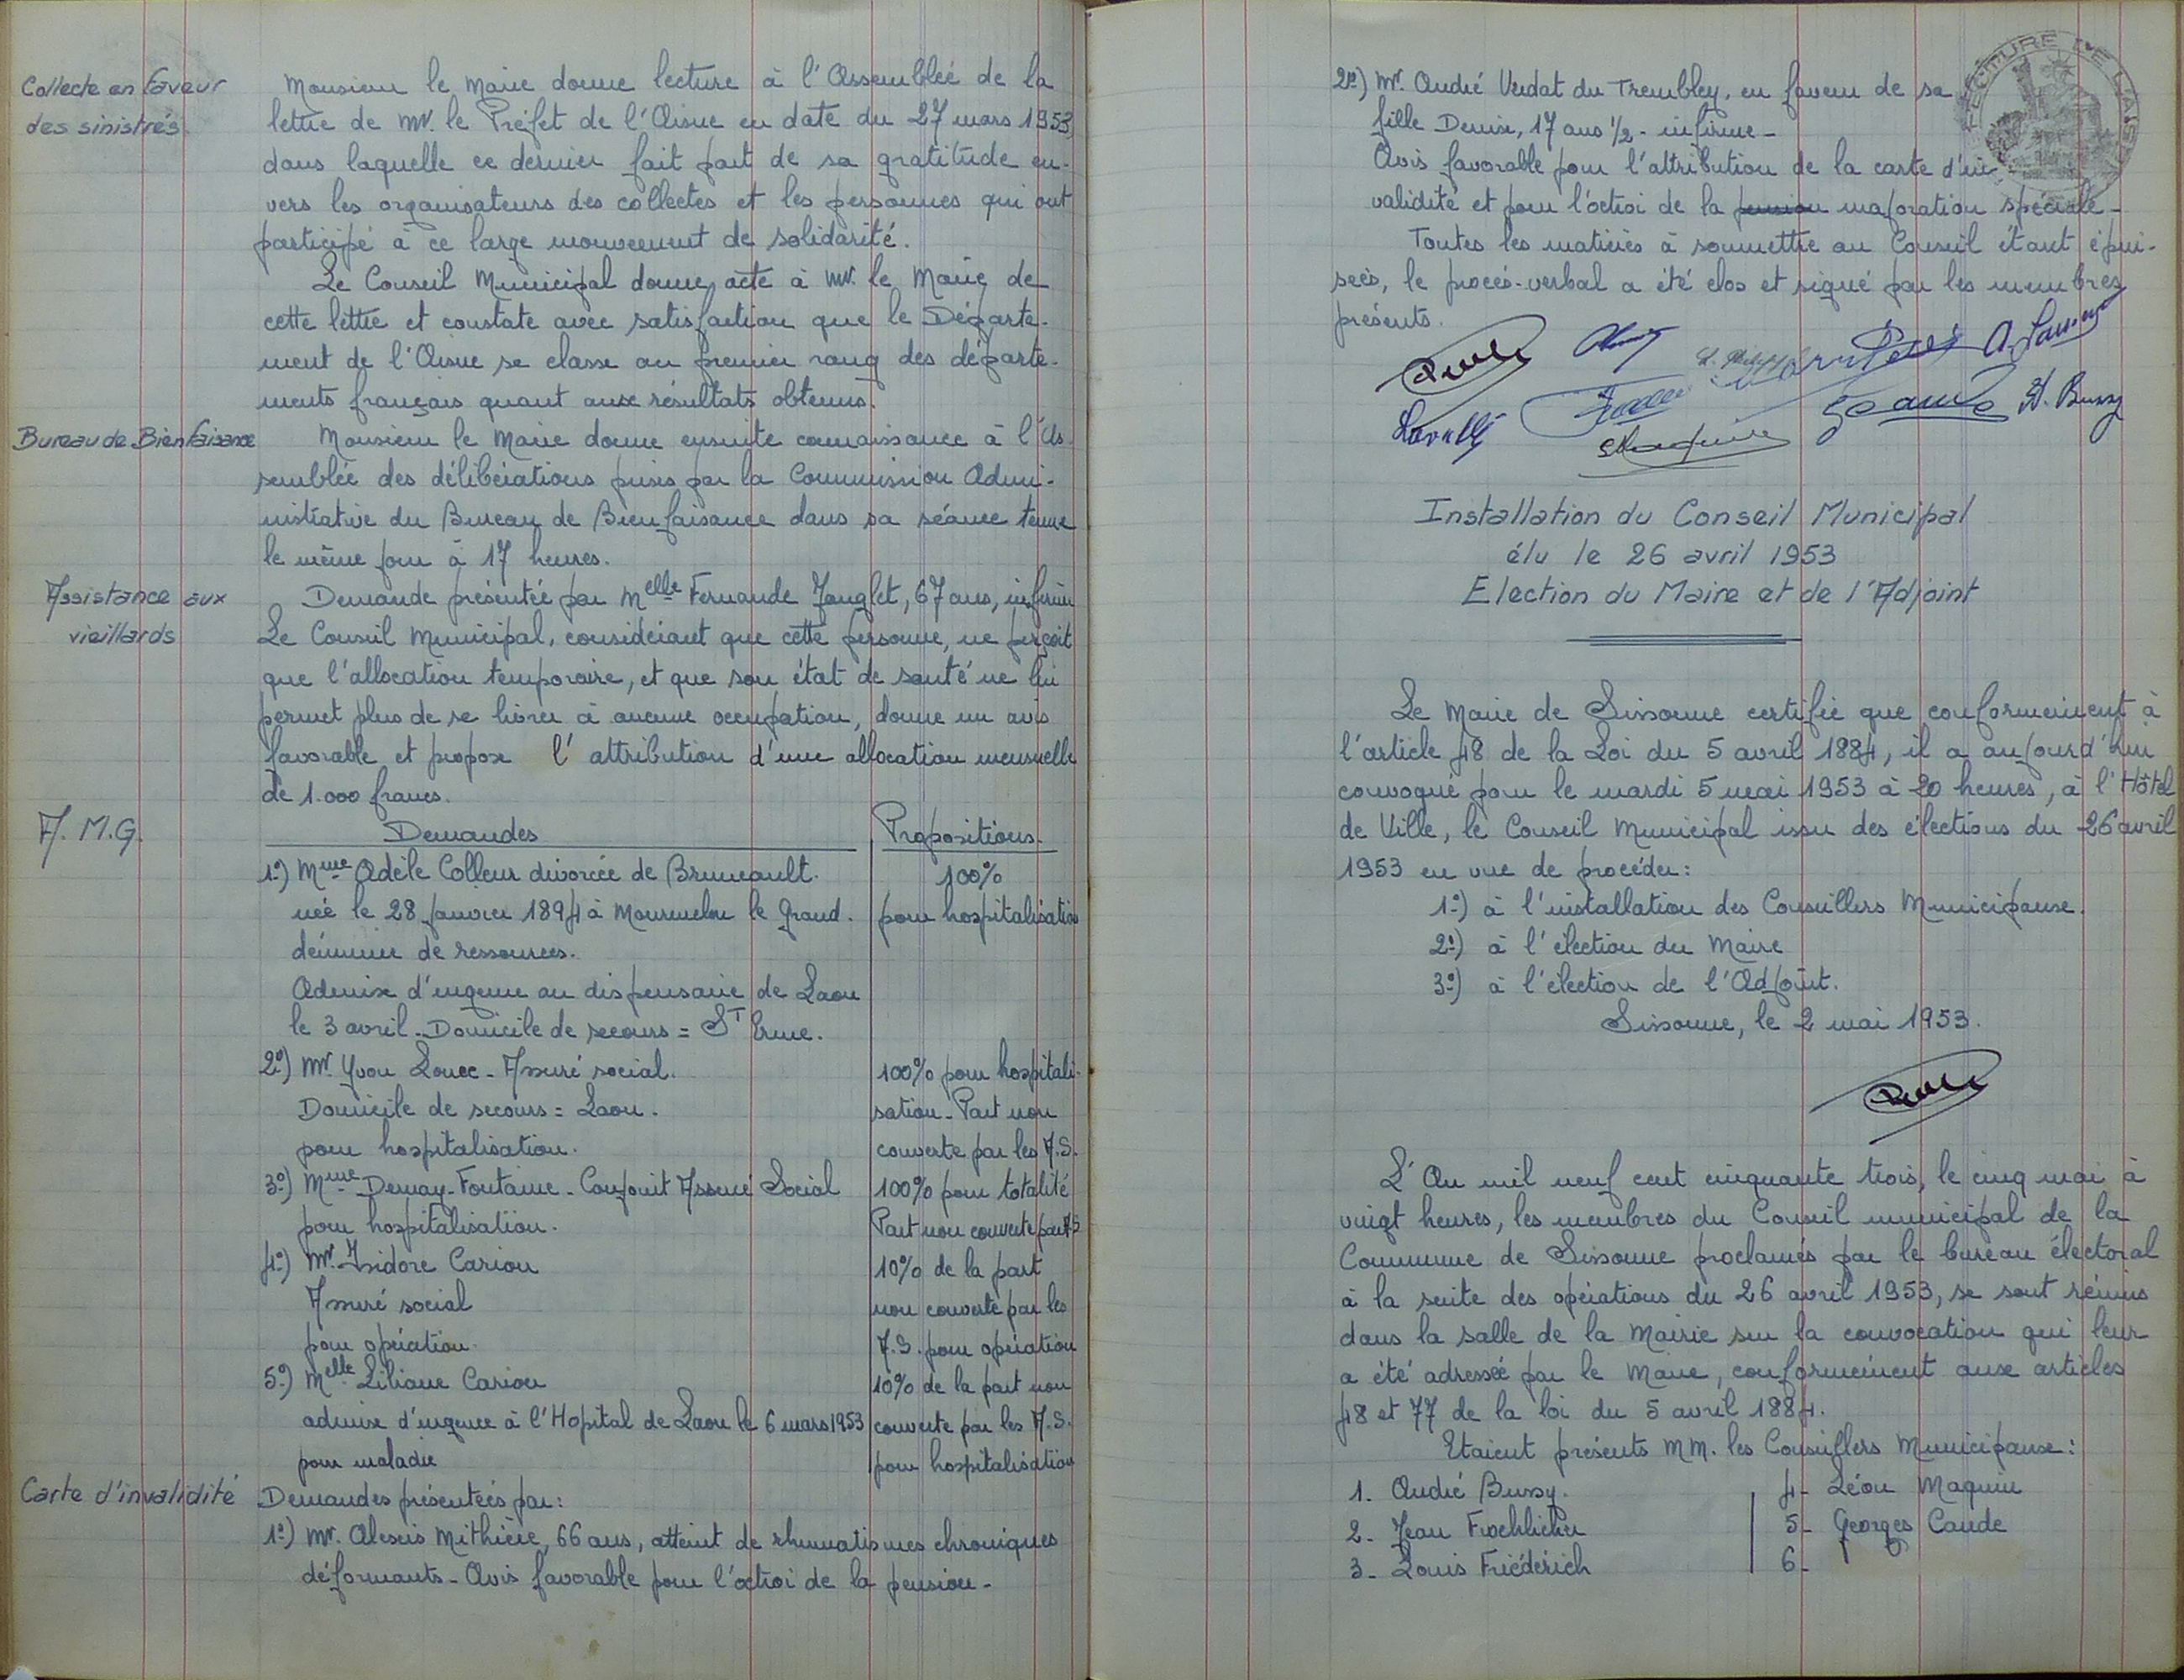 Collecte en faveur
des sinistrés
Monsieur le Maire donne lecture à l'Assemblée de la
lettre de Mr. le Préfet de l'Aisne en date du 27 mars 1953,
dans laquelle ce dernier fait part de sa gratitude en-
vers les organisateurs des collectes et les personnes qui ont
participé à ce large mouvement de solidarité.
Le Conseil Municipal donne acte à Mr. le Maire de
cette lettre et constate avec satisfaction que le Départe-
ment de l'Aisne se classe au premier rang des départe-
ments français quant aux résultats obtenus.
Bureau de Bienfaisance
Monsieur le Maire donne ensuite connaissance à l'As-
semblée des délibérations prises par la Commission Admi-
nistrative du Bureau de Bienfaisance dans sa séance tenue
le même jour à 17 heures.
Assistance aux
vieillards
Demande présentée par Melle Fernande Janglet, 67 ans, infirme
Le Conseil Municipal, considérant que cette personne, ne perçoit
que l'allocation temporaire, et que son état de santé ne lui
permet plus de se livrer à aucune occupation, donne un avis
favorable et propose l'attribution d'une allocation mensuelle
de 1.000 francs.
A. M.G.
Demandes Propositions.
1º) Mme Adèle Colleur divorcée de Bruneault. 100%
née le 28 janvier 1894 à Mourmelon le Grand. pour hospitalisation
démunie de ressources.
Admise d'urgence au dispensaire de Laon
le 3 avril. Domicile de secours = St Erme.
2º) Mr. Yvon Louec - Assuré social. 100% pour hospitali-
Domicile de secours = Laon. sation - Part non
pour hospitalisation. couverte par les A.S.
3º) Mme Demay-Fontaine - Conjoint Assuré Social 100% pour totalité
pour hospitalisation. Part non couverte par A.S
4º) Mr. Isidore Cariou 10% de la part
Assuré social non couverte par les
pour opération. A.S. pour opération
5º) Melle Liliane Cariou 10% de la part non
admise d'urgence à l'Hopital de Laon le 6 mars 1953 couverte par les A.S.
pour maladie pour hospitalisation
Carte d'invalidité
Demandes présentées par:
1º) Mr. Alexis Mithière, 66 ans, atteint de rhumatismes chroniques
déformants - Avis favorable pour l'octroi de la pension -
2º) Mr. André Verdat du Trembley, en faveur de sa
fille Denise, 17 ans 1/2 - infirme -
Avis favorable pour l'attribution de la carte d'in-
validité et pour l'octroi de la pension majoration spéciale -
Toutes les matières à soumettre au Conseil étant épui-
sées, le procès-verbal a été clos et signé par les membres
présents.
A. Bussy
Installation du Conseil Municipal
élu le 26 avril 1953
Election du Maire et de l'Adjoint
Le Maire de Sissonne certifie que conformément à
l'article 48 de la Loi du 5 avril 1884, il a aujourd'hui
convoqué pour le mardi 5 mai 1953 à 20 heures, à l'Hôtel
de Ville, le Conseil Municipal issu des élections du 26 avril
1953 en vue de procéder:
1º) à l'installation des Conseillers Municipaux.
2º) à l'élection du Maire
3º) à l'élection de l'Adjoint.
Sissonne, le 2 mai 1953.
L'An mil neuf cent cinquante trois, le cinq mai à
vingt heures, les membres du Conseil municipal de la
Commune de Sissonne proclamés par le bureau électoral
à la suite des opérations du 26 avril 1953, se sont réunis
dans la salle de la Mairie sur la convocation qui leur
a été adressée par le Maire, conformément aux articles
48 et 77 de la loi du 5 avril 1884.
Etaient présents MM. les Conseillers Municipaux:
1. André Bussy. 4- Léon Maquin
2- Jean Froehlicher 5- Georges Caude
3- Louis Friédérich 6-